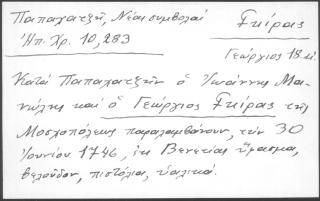 Παπαχατζῆ, Νέαι συμβολαί
Γκίρας
Ἠπ. Χρ. 10, 283
Γεώργιος 18 αἰ.
Κατὰ Παπαχατζῆν ὁ Ἰωάννης Μα-
νώλης καὶ ὁ Γεώργιος Γκίρας τῆς
Μοσχοπόλεως παραλαμβάνουν, τὴν 30
Ἰουνίου 1746, ἐκ Βενετίας ὕφασμα,
βελοῦδον, πιστόλια, ὑαλικά.